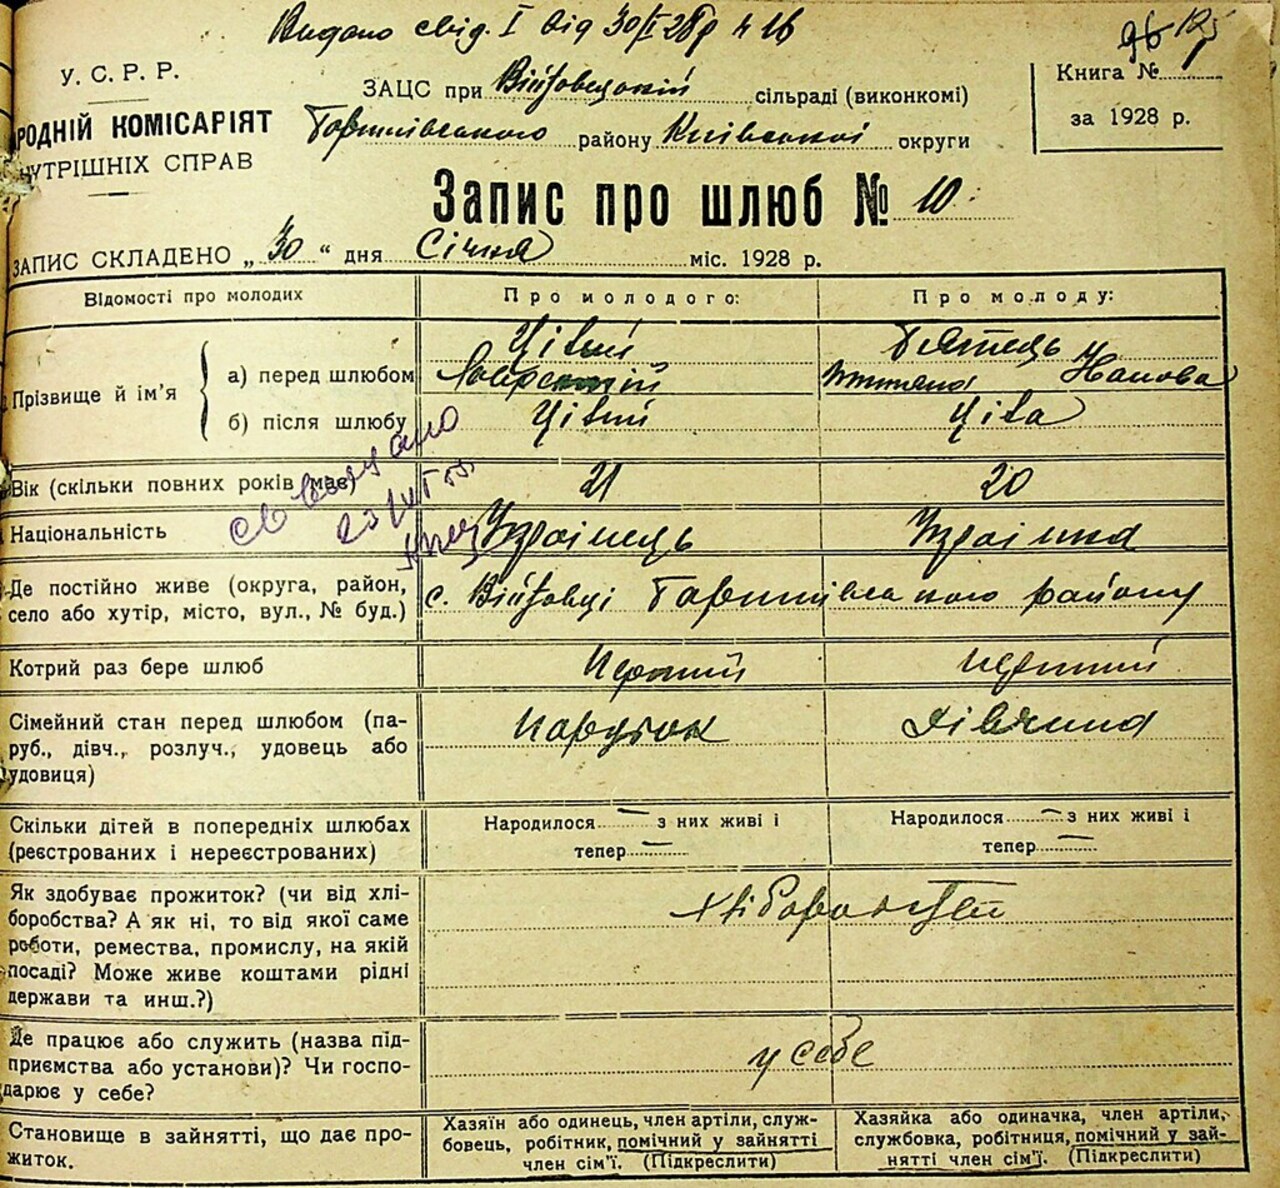 Видано свід. I від 30/I 28р № 16
У. С. Р. Р.
РОДНІЙ КОМІСАРІЯТ
НУТРІШНІХ СПРАВ
ЗАЦС при Війтовецькій сільраді (виконкомі)
району Київської округи
Книга № 1
за 1928 р.
Запис про шлюб № 10
ЗАПИС СКЛАДЕНО „ 30 “ дня Січня міс. 1928 р.
Відомості про молодих
Про молодого:
Про молоду:
Прізвище й ім’я
а) перед шлюбом
Цівий
б) після шлюбу
Цівий
Ціва
Вік (скільки повних років має)
21
20
Національність
Українець
Українка
Де постійно живе (округа, район,
село або хутір, місто, вул., № буд.)
с. Війтовці району
Котрий раз бере шлюб
Перший
Перший
Сімейний стан перед шлюбом (па-
руб., дівч., розлуч., удовець або
удовиця)
Парубок
Дівчина
Скільки дітей в попередніх шлюбах
(реєстрованих і нереєстрованих)
Народилося — з них живі і
тепер —
Народилося — з них живі і
тепер —
Як здобуває прожиток? (чи від хлі-
боробства? А як ні, то від якої саме
роботи, ремества, промислу, на якій
посаді? Може живе коштами рідні
держави та инш.?)
Де працює або служить (назва під-
приємства або установи)? Чи госпо-
дарює у себе?
у себе
Становище в зайнятті, що дає про-
житок.
Хазяїн або одинець, член артілі, служ-
бовець, робітник, помічний у зайнятті
член сім’ї. (Підкреслити)
Хазяйка або одиначка, член артілі,
службовка, робітниця, помічний у зай-
нятті член сім’ї. (Підкреслити)